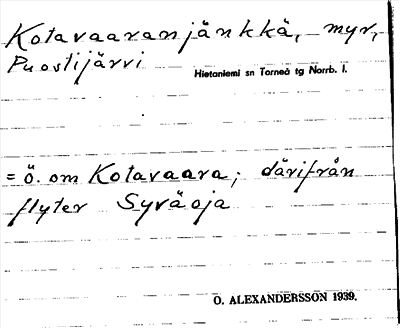 Kotavaaranjänkkä, myr,
Puostijärvi
Hietaniemi sn Torneå tg Norrb. l.
= ö. om Kotavaara; därifrån
flyter Syväoja
O. ALEXANDERSSON 1939.